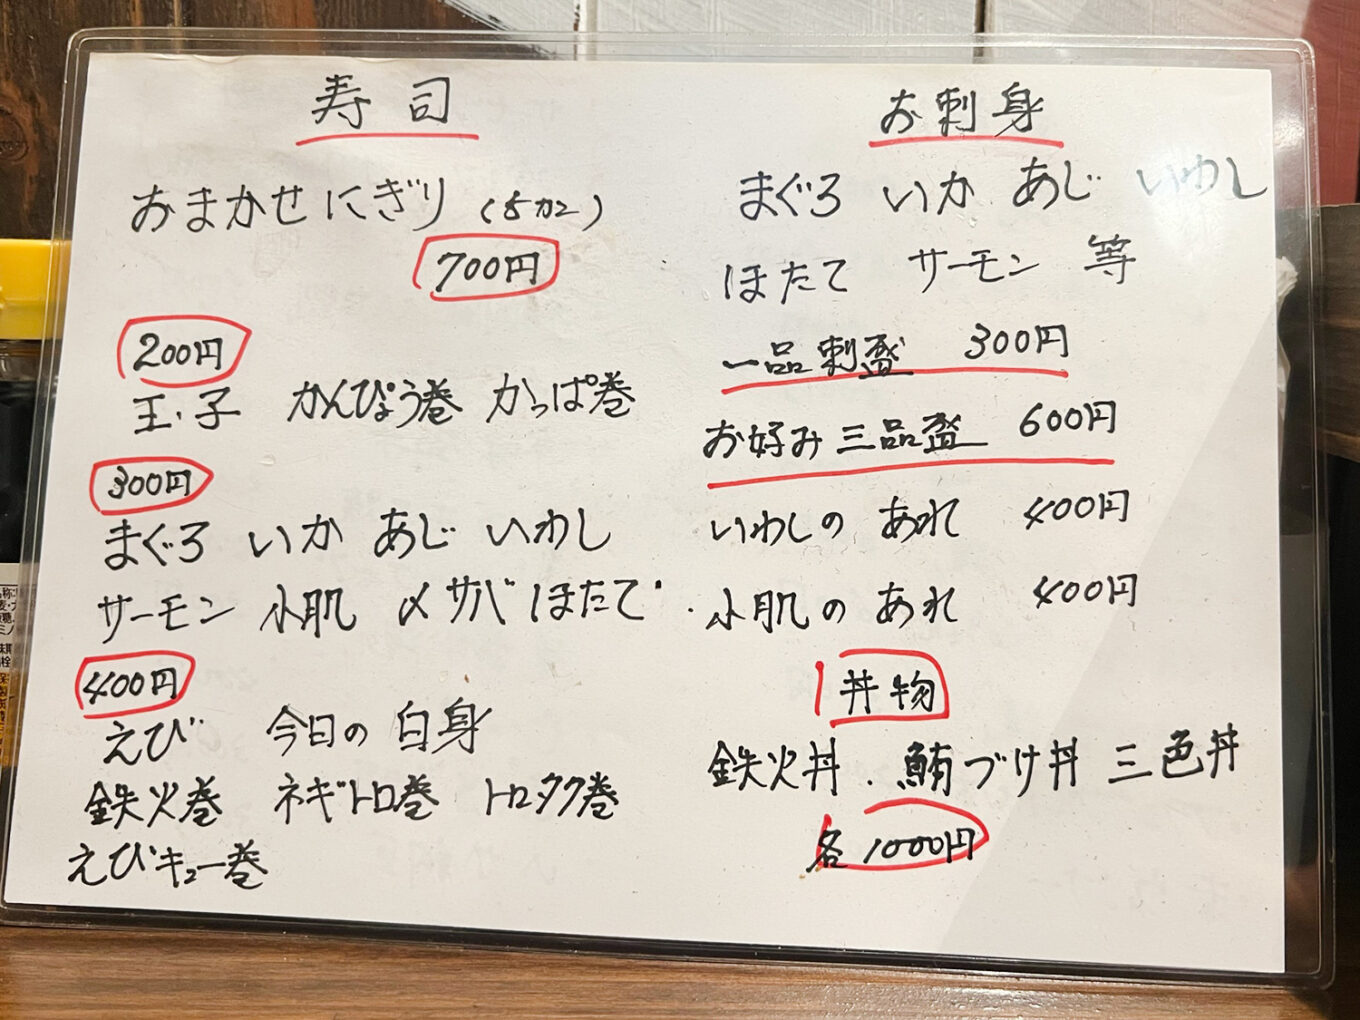 寿司
おまかせにぎり (5カン)
700円
200円
玉・子 かんぴょう巻 かっぱ巻
300円
まぐろ いか あじ いわし
サーモン 小肌 〆サバ ほたて
400円
えび 今日の白身
鉄火巻 ネギトロ巻 トロタク巻
えびキュー巻
お刺身
まぐろ いか あじ いわし
ほたて サーモン 等
一品刺盛 300円
お好み三品盛 600円
いわしの あれ 400円
小肌の あれ 400円
丼物
鉄火丼.鮪づけ丼 三色丼
各1000円